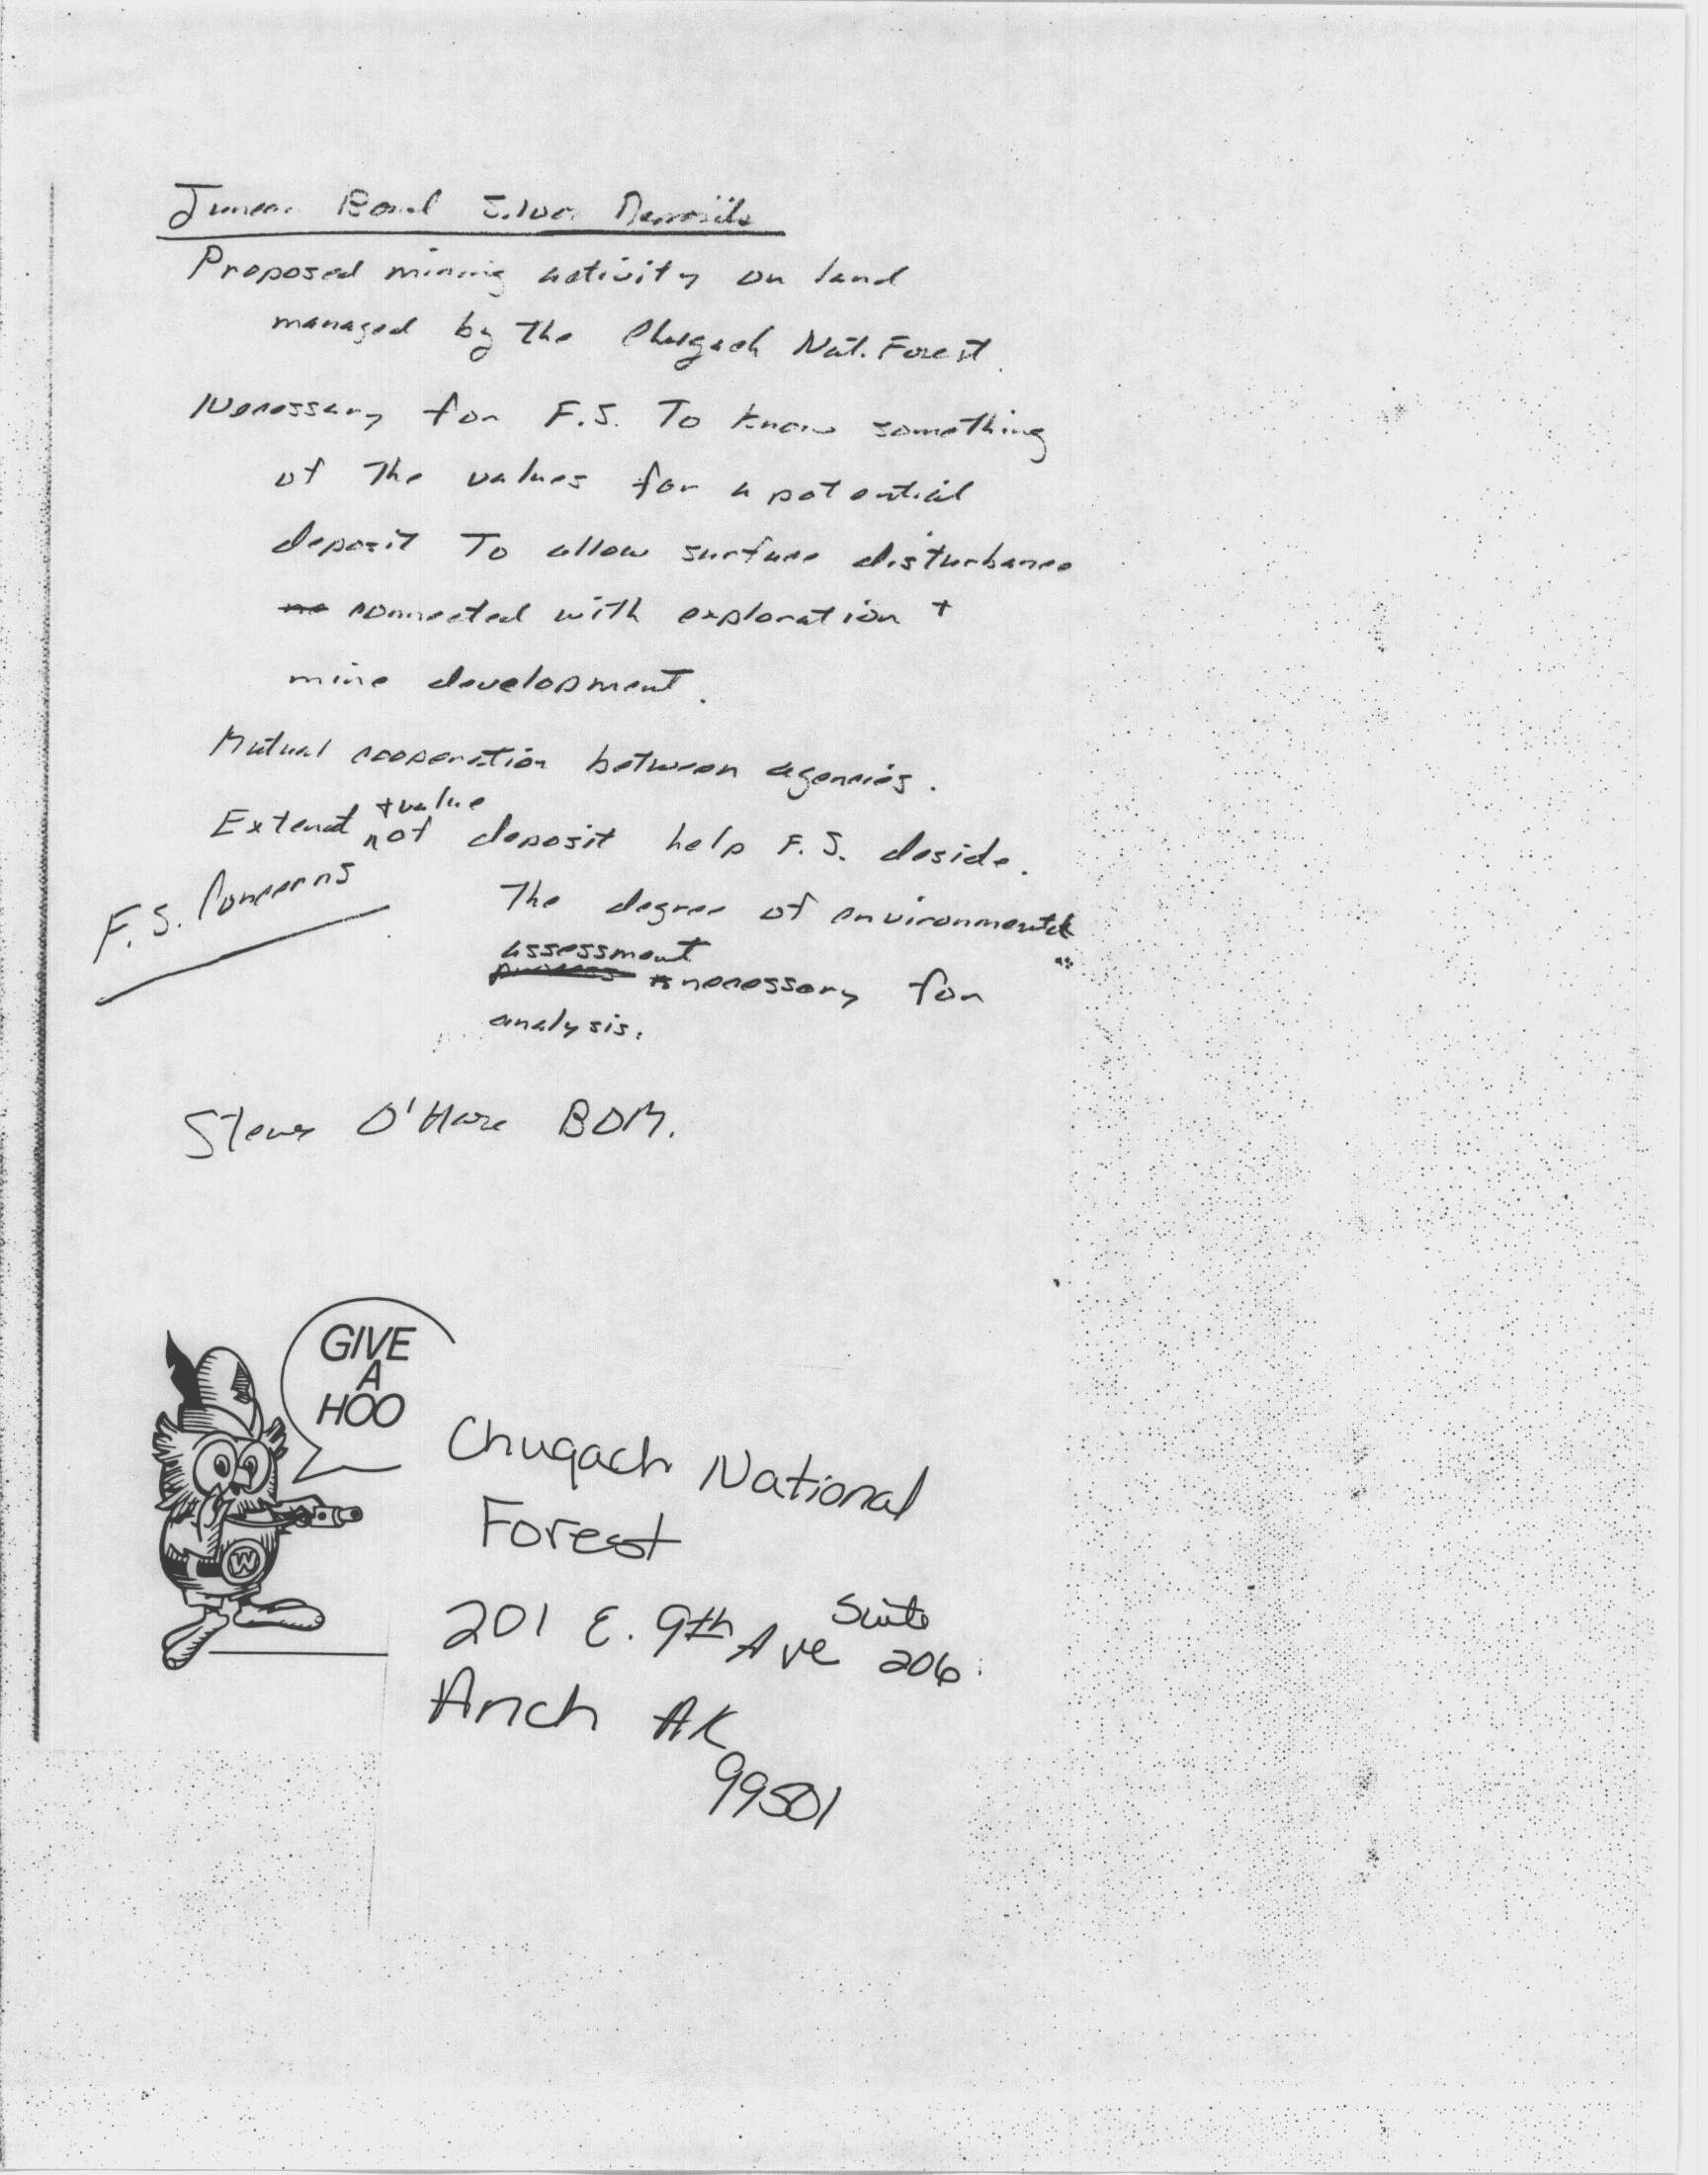 Proposed mining activity on land
managed by The Chugach Nat. Forest.
Necessary for F.S. To know something
of The values for a potential
deposit To allow surface disturbance
connected with exploration +
mine development.
Mutual cooperation between agencies.
+ value
Extent of deposit help F.S. deside.
F.S. Concerns
The degree of environmental
assessment
necessary for
analysis.
Steve O'Hare BOM.
GIVE
A
HOO
W
Chugach National
Forest
201 E. 9th Ave Suite 206
Anch AK
99501